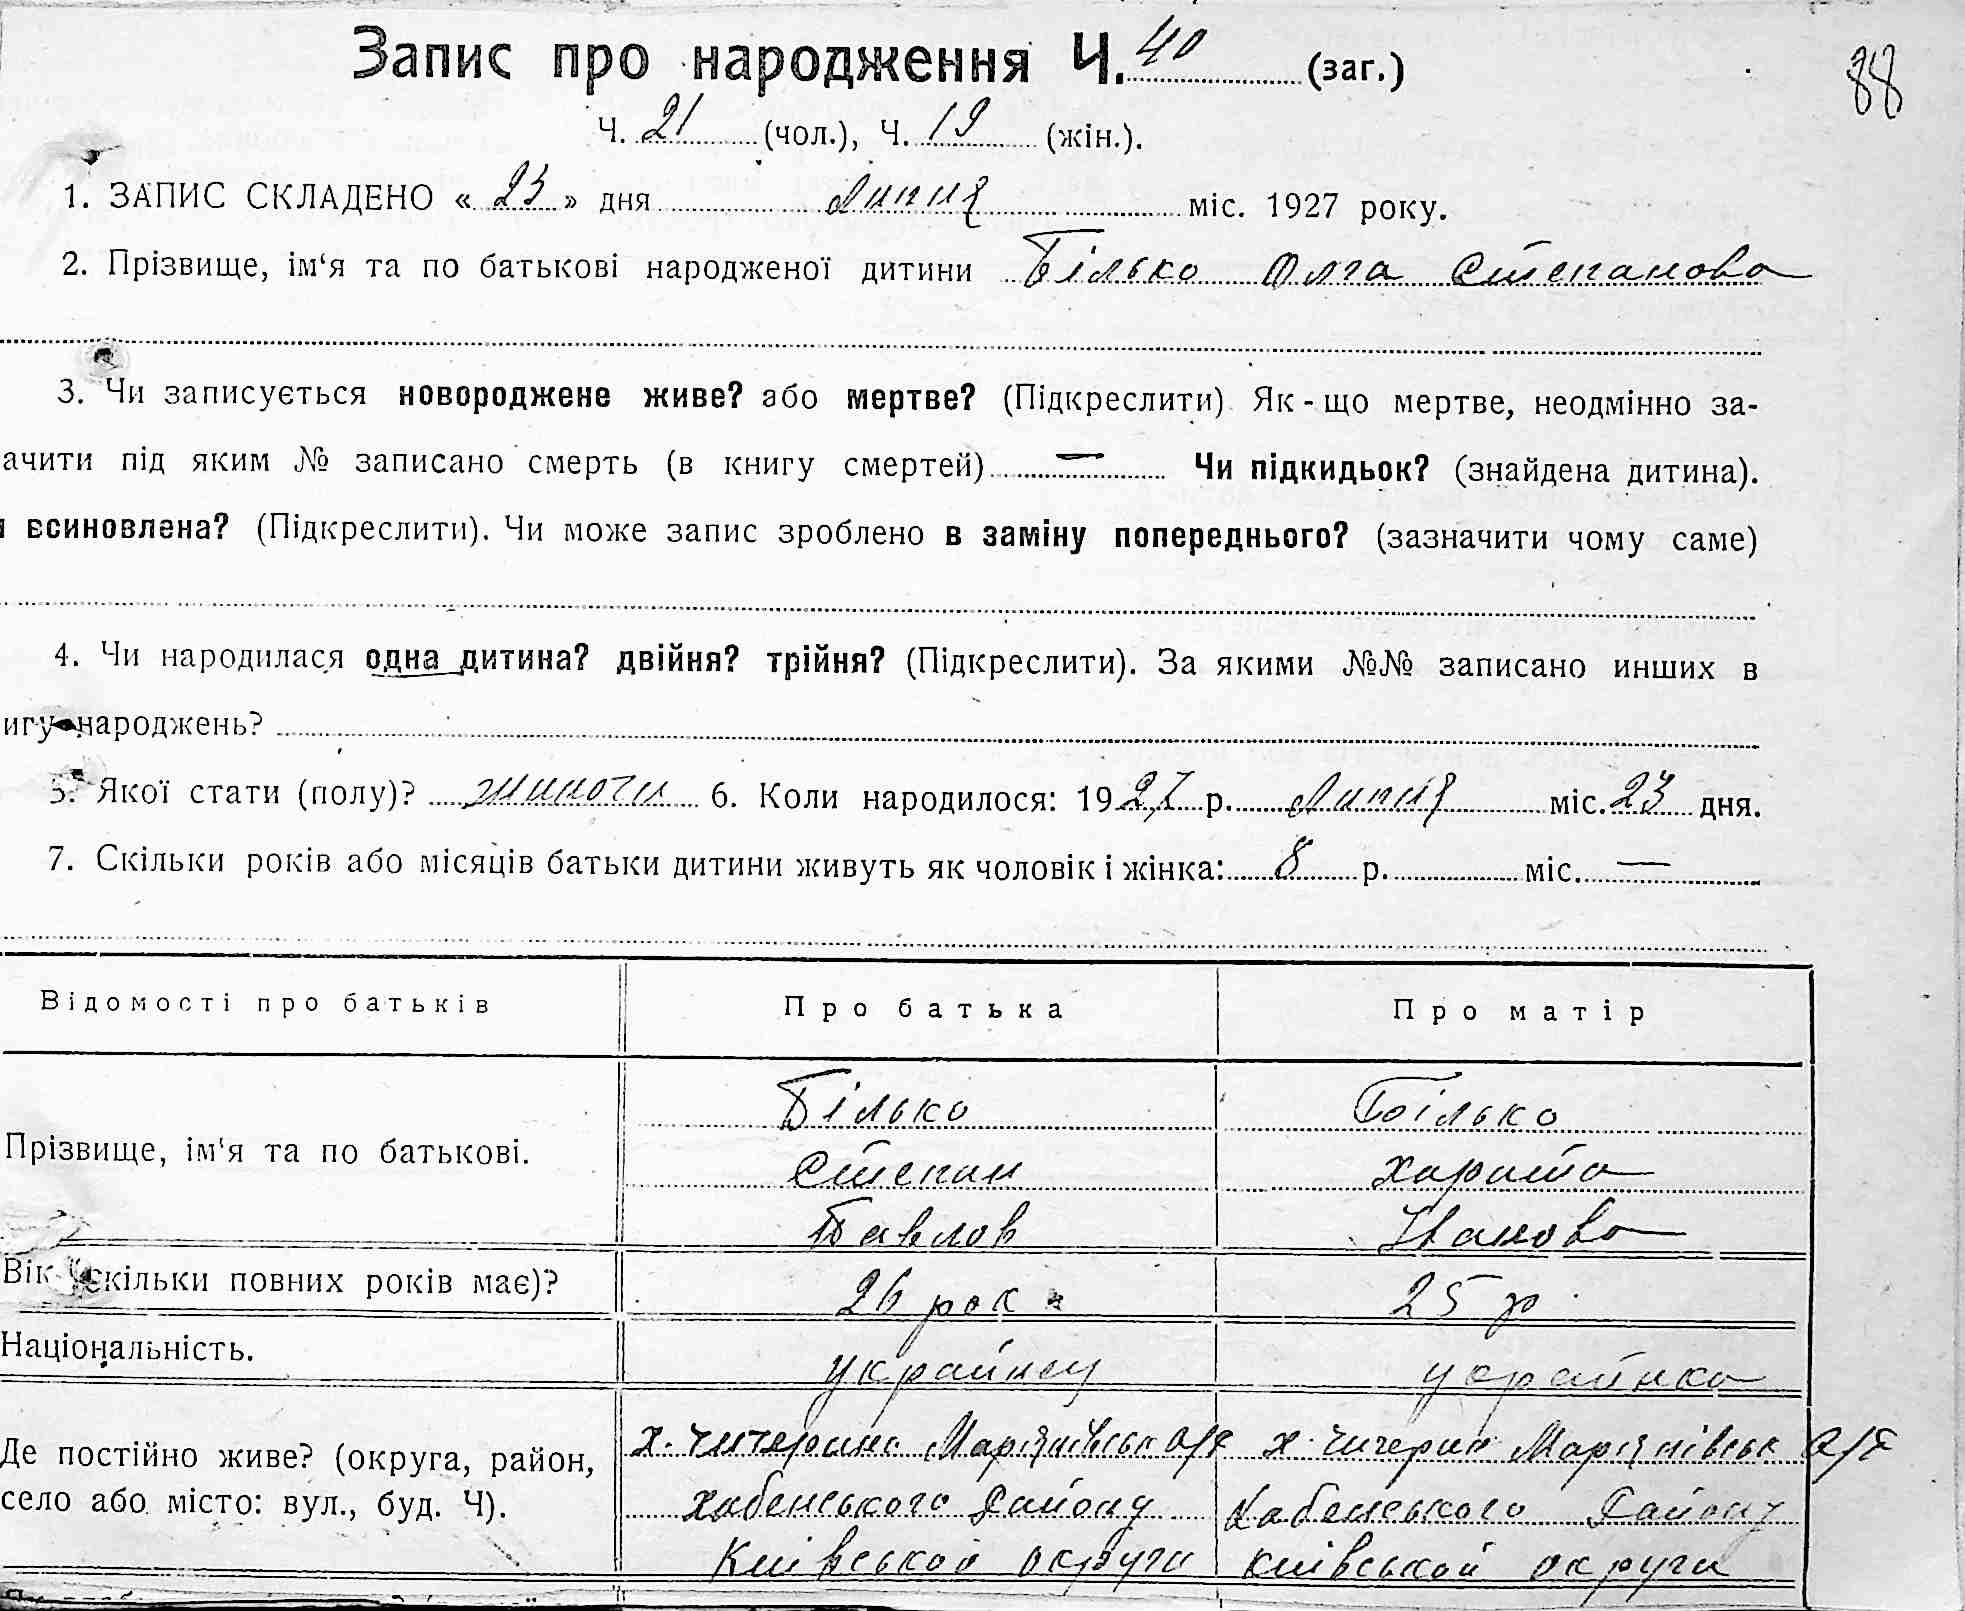 Запис про народження Ч. 40 (заг.)
88
Ч. 21 (чол.), Ч. 19 (жін.).
1. ЗАПИС СКЛАДЕНО « 23 » дня Липня міс. 1927 року.
2. Прізвище, ім‘я та по батькові народженої дитини Білько Олга Степанова
3. Чи записується новороджене живе? або мертве? (Підкреслити) Як-що мертве, неодмінно за-
ачити під яким № записано смерть (в книгу смертей) — Чи підкидьок? (знайдена дитина).
всиновлена? (Підкреслити). Чи може запис зроблено в заміну попереднього? (зазначити чому саме)
4. Чи народилася одна дитина? двійня? трійня? (Підкреслити). За якими №№ записано инших в
игу народжень?
5. Якої стати (полу)? жиночи 6. Коли народилося: 1927 р. Липня міс. 23 дня.
7. Скільки років або місяців батьки дитини живуть як чоловік і жінка: 8 р. міс. —
Відомості про батьків Про батька Про матір
Прізвище, ім‘я та по батькові.
Білько Білько
Степан Харита
Павлов Иванова
Вік (скільки повних років має)? 26 рок 25 р.
Національність. украйнец украйнка
Де постійно живе? (округа, район,
село або місто: вул., буд. Ч).
х. Чичерина Мар'янівськ х. Чичерин Мар'янівськ
Хабенського Району Хабенського Району
Київськой округи Київськой округи